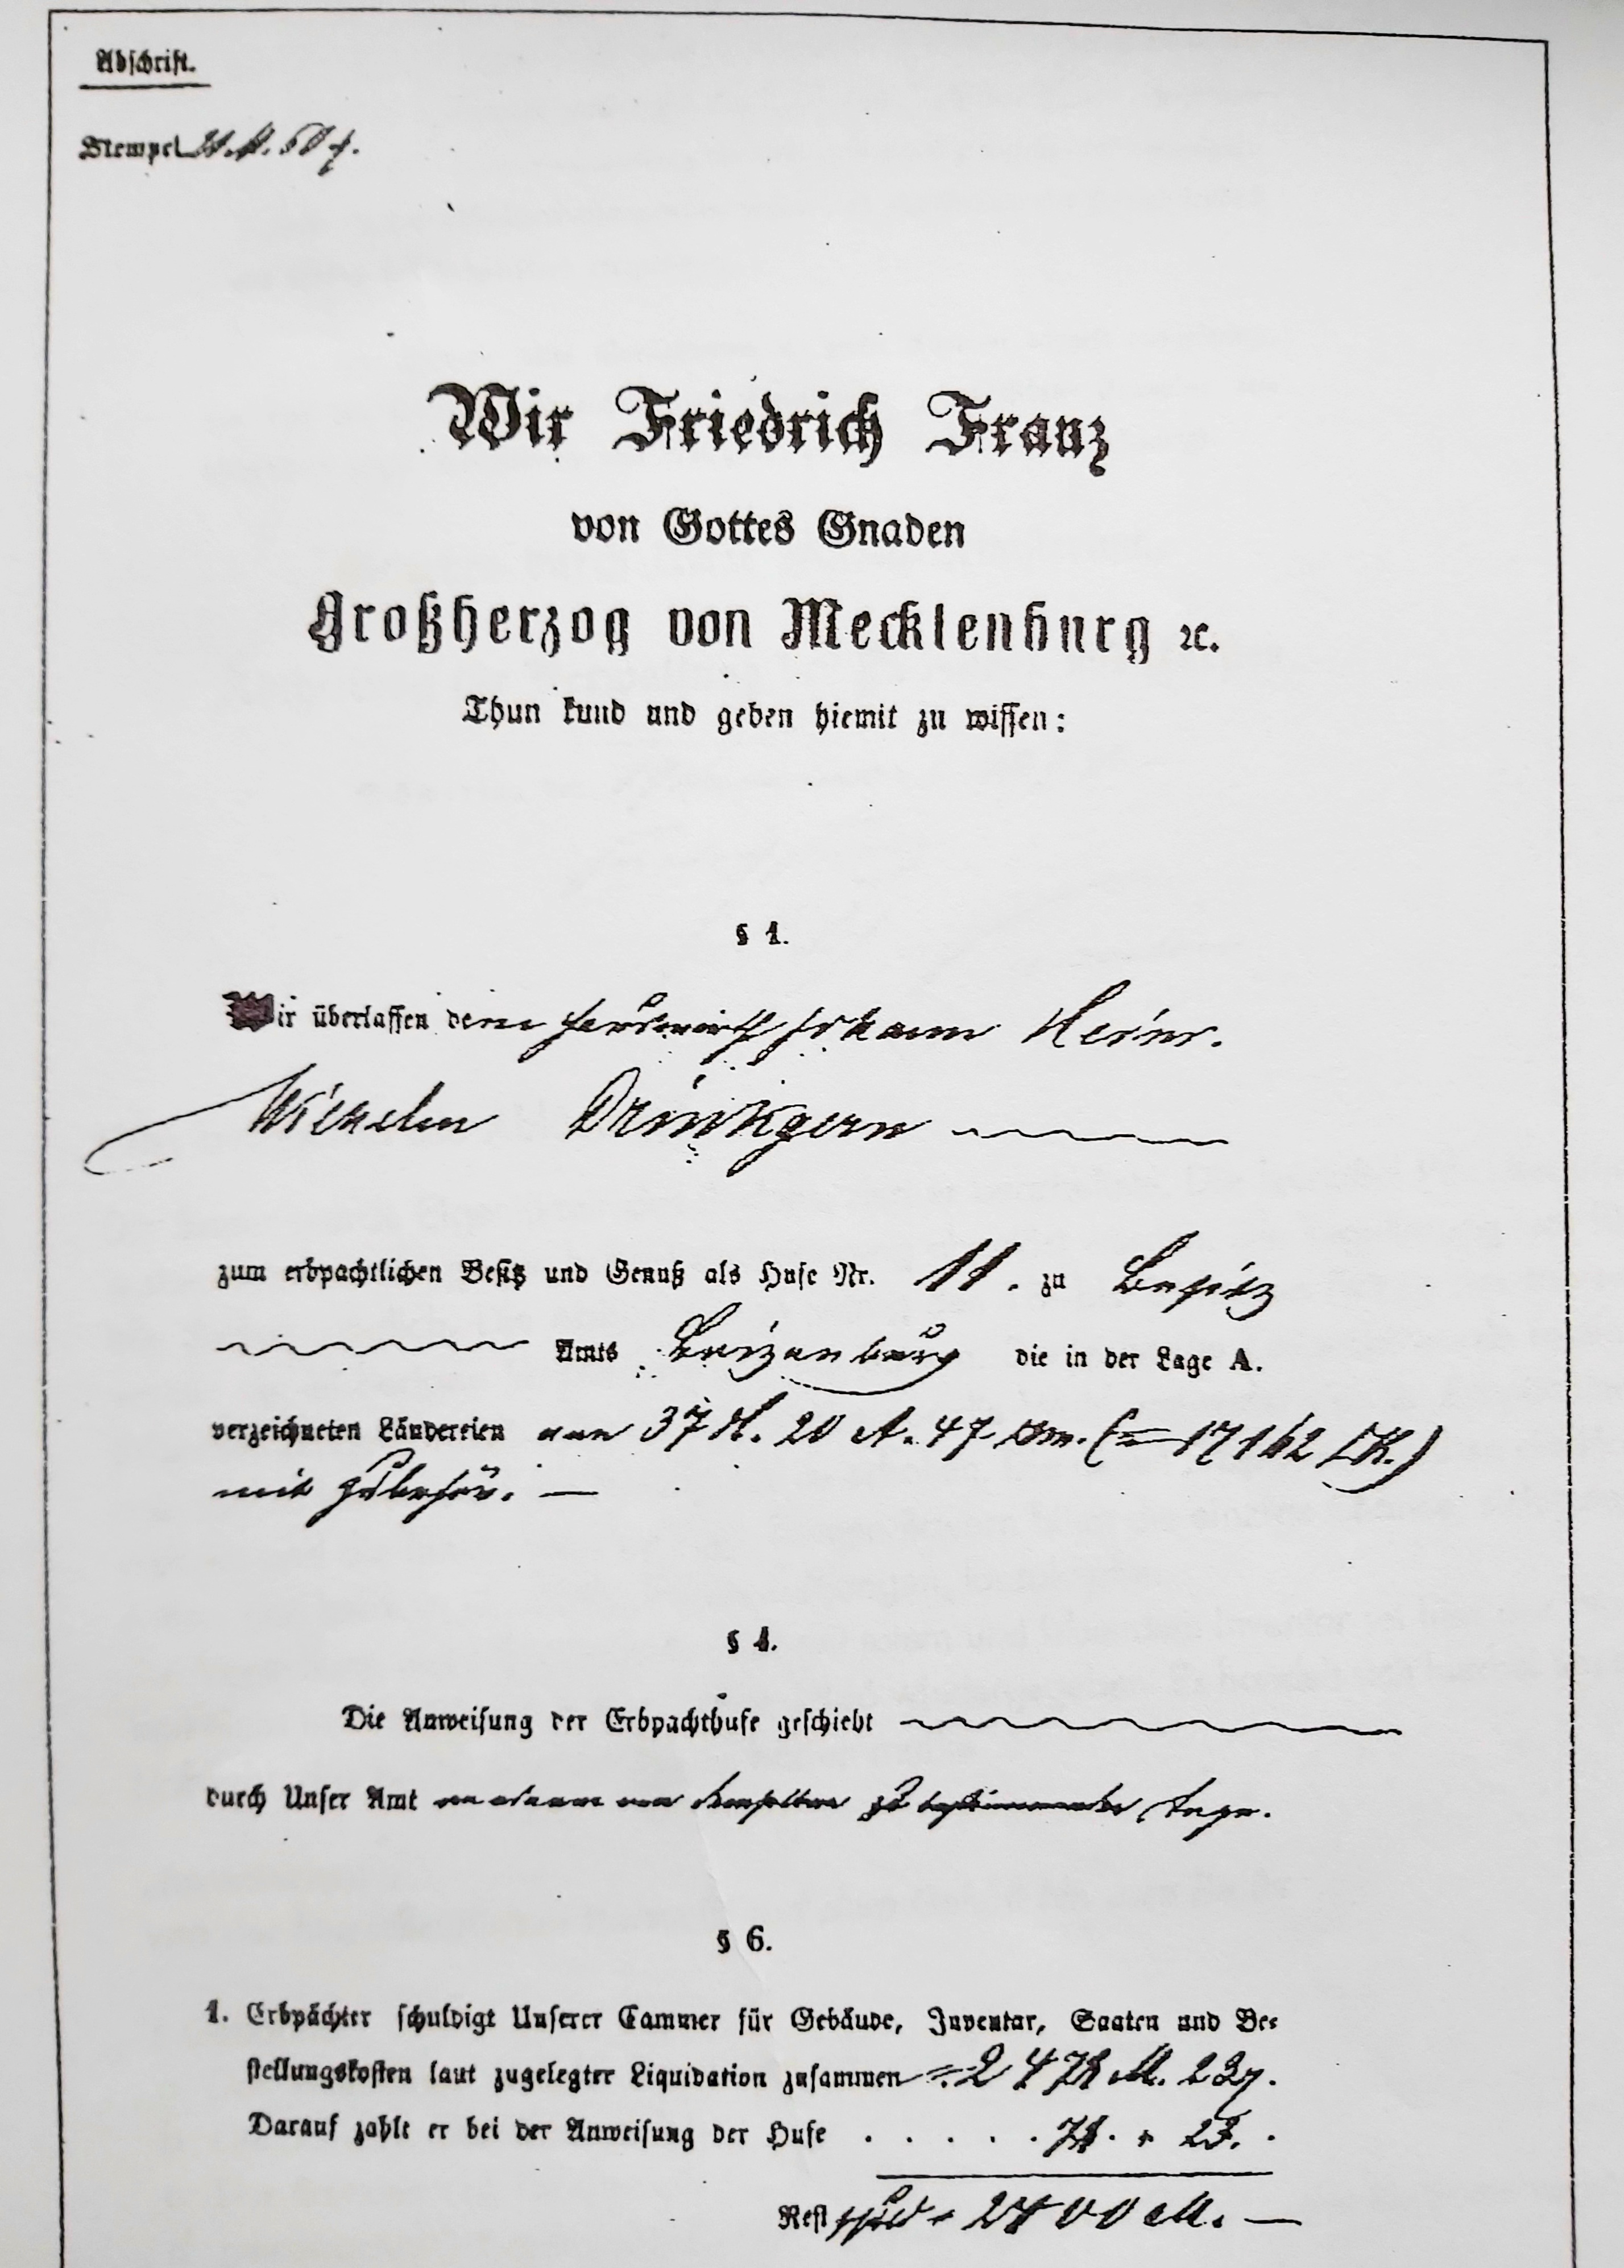 Abschrift.
Stempel M. 50 ₰.
Wir Friedrich Franz
von Gottes Gnaden
Großherzog von Mecklenburg ꝛc.
Thun kund und geben hiemit zu wissen:
§ 1.
Wir überlassen dem Hauswirth Johann Heinr.
Wilhelm Drinkgern
zum erbpachtlichen Besitz und Genuß als Hufe Nr. 11. zu Besitz
Amts Boizenburg die in der Lage A.
verzeichneten Ländereien von 37 H. 20 A. 47 □m. (= 17162 □R.)
mit Zubehör. —
§ 4.
Die Anweisung der Erbpachthufe geschieht
durch Unser Amt an einem von demselben zu bestimmenden Tage.
§ 6.
1. Erbpächter schuldigt Unserer Cammer für Gebäude, Inventar, Saaten und Be-
stellungskosten laut zugelegter Liquidation zusammen = 2471 M. 23 ₰.
Darauf zahlt er bei der Anweisung der Hufe . . . . . 71 . " 23. .
Rest schuld = 2400 M. —